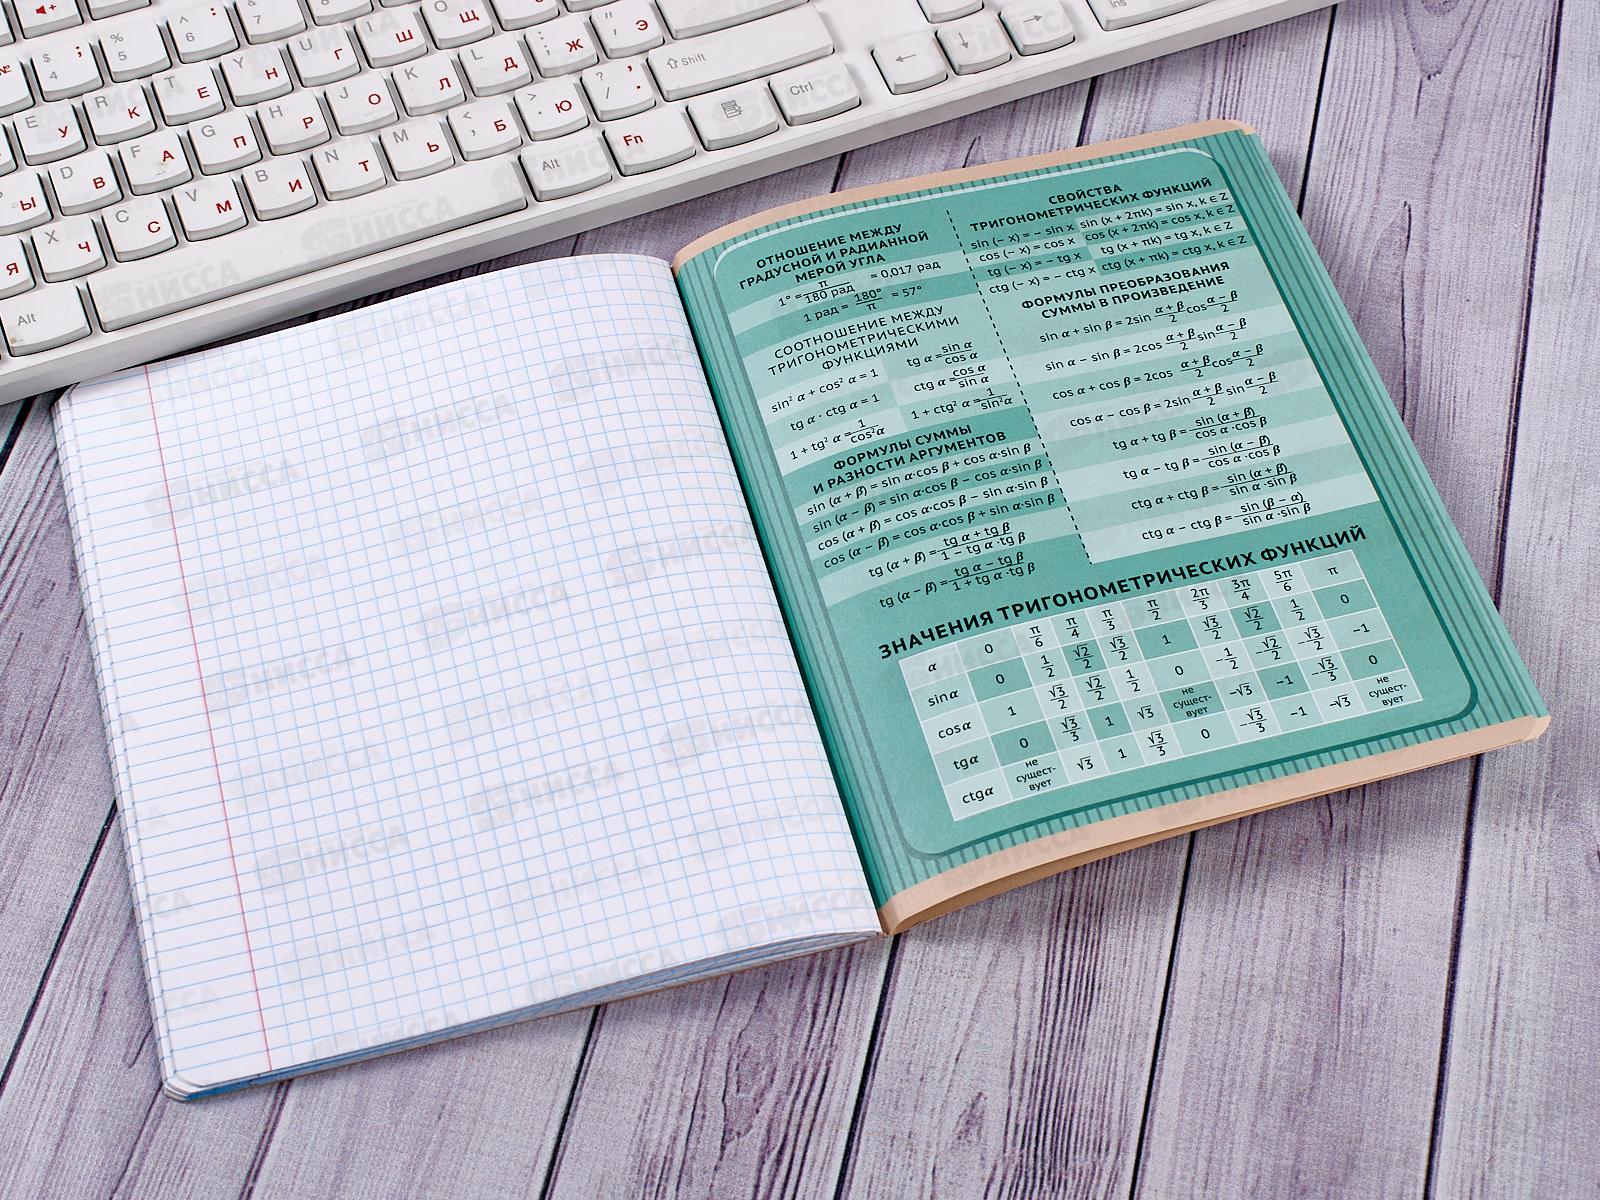 $ 4 ;
% 5 :
^ 6
& 7
E У
R К
T Е
Y Н
U Г
I Ш
O Щ
: ; Ж
" ' Э
Shift
Ins
D В
F А
G П
H Р
J О
K Л
L Д
> . Ю
? / , .
Ctrl
Ы
X Ч
C С
V М
B И
N Т
M Ь
< , Б
Alt
Fn
Я
Alt
ОТНОШЕНИЕ МЕЖДУ
ГРАДУСНОЙ И РАДИАННОЙ
МЕРОЙ УГЛА
1° = π/180 рад ≈ 0,017 рад
1 рад = 180°/π ≈ 57°
СООТНОШЕНИЕ МЕЖДУ
ТРИГОНОМЕТРИЧЕСКИМИ
ФУНКЦИЯМИ
sin² α + cos² α = 1 tg α = sin α/cos α
tg α · ctg α = 1 ctg α = cos α/sin α
1 + tg² α = 1/cos²α 1 + ctg² α = 1/sin²α
ФОРМУЛЫ СУММЫ
И РАЗНОСТИ АРГУМЕНТОВ
sin (α + β) = sin α·cos β + cos α·sin β
sin (α − β) = sin α·cos β − cos α·sin β
cos (α + β) = cos α·cos β − sin α·sin β
cos (α − β) = cos α·cos β + sin α·sin β
tg (α + β) = tg α + tg β/1 − tg α·tg β
tg (α − β) = tg α − tg β/1 + tg α·tg β
СВОЙСТВА
ТРИГОНОМЕТРИЧЕСКИХ ФУНКЦИЙ
sin (− x) = − sin x sin (x + 2πk) = sin x, k ∈ Z
cos (− x) = cos x cos (x + 2πk) = cos x, k ∈ Z
tg (− x) = − tg x tg (x + πk) = tg x, k ∈ Z
ctg (− x) = − ctg x ctg (x + πk) = ctg x, k ∈ Z
ФОРМУЛЫ ПРЕОБРАЗОВАНИЯ
СУММЫ В ПРОИЗВЕДЕНИЕ
sin α + sin β = 2sin α + β/2 cos α − β/2
sin α − sin β = 2cos α + β/2 sin α − β/2
cos α + cos β = 2cos α + β/2 cos α − β/2
cos α − cos β = 2sin α + β/2 sin α − β/2
tg α + tg β = sin (α + β)/cos α·cos β
tg α − tg β = sin (α − β)/cos α·cos β
ctg α + ctg β = sin (α + β)/sin α·sin β
ctg α − ctg β = sin (β − α)/sin α·sin β
ЗНАЧЕНИЯ ТРИГОНОМЕТРИЧЕСКИХ ФУНКЦИЙ
α 0 π/6 π/4 π/3 π/2 2π/3 3π/4 5π/6 π
sinα 0 1/2 √2/2 √3/2 1 √3/2 √2/2 1/2 0
cosα 1 √3/2 √2/2 1/2 0 −1/2 −√2/2 −√3/2 −1
tgα 0 √3/3 1 √3 не сущест-вует −√3 −1 −√3/3 0
ctgα не сущест-вует √3 1 √3/3 0 −√3/3 −1 −√3 не сущест-вует
НИССА